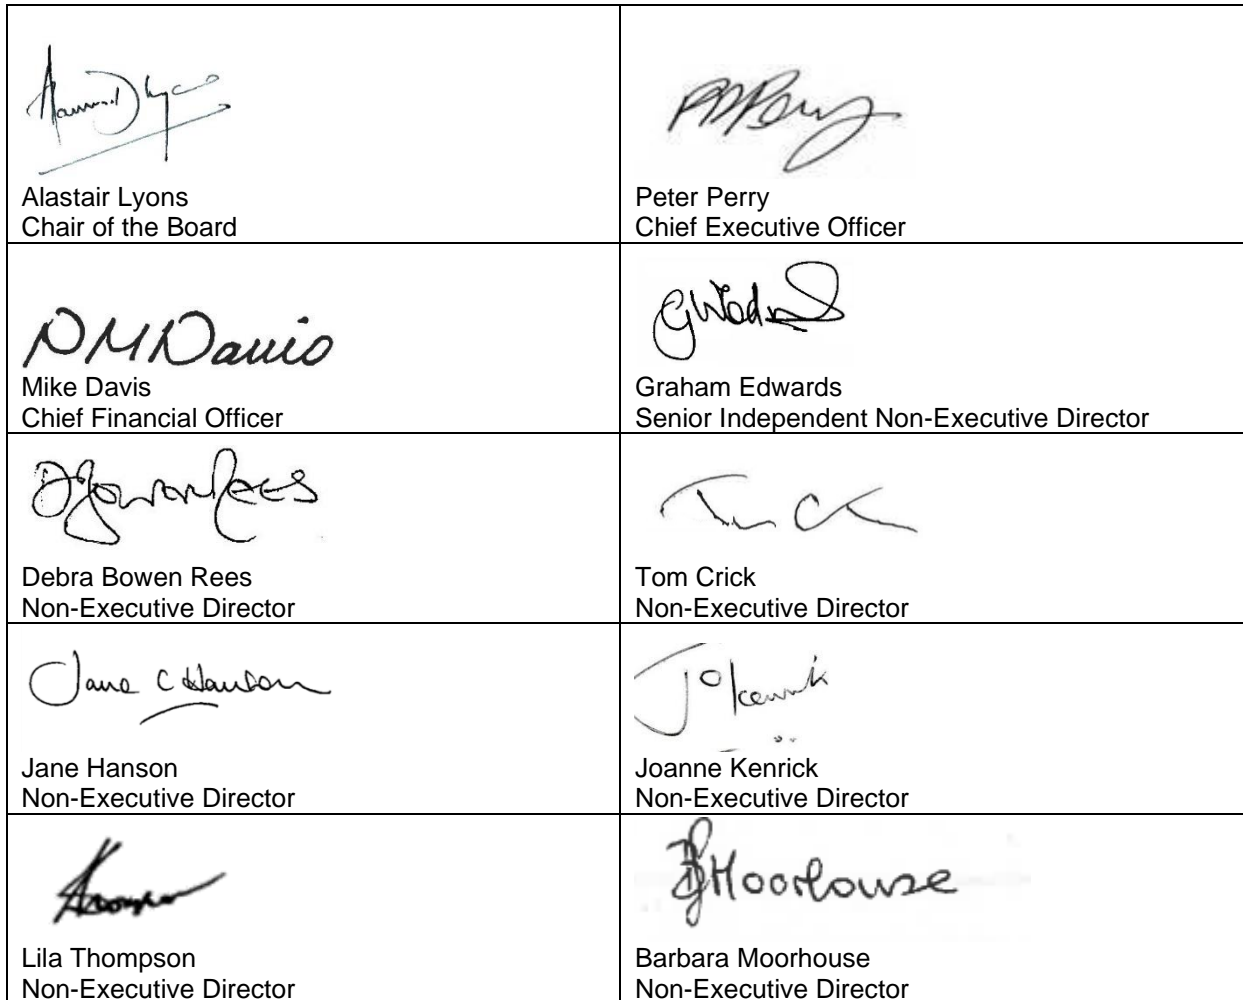 Alastair Lyons
Chair of the Board
PMPerry
Peter Perry
Chief Executive Officer
DMDavis
Mike Davis
Chief Financial Officer
Graham Edwards
Senior Independent Non-Executive Director
DJBowenRees
Debra Bowen Rees
Non-Executive Director
Tom Crick
Non-Executive Director
Jane C Hanson
Jane Hanson
Non-Executive Director
Jo Kenrick
Joanne Kenrick
Non-Executive Director
Lila Thompson
Non-Executive Director
Moorhouse
Barbara Moorhouse
Non-Executive Director